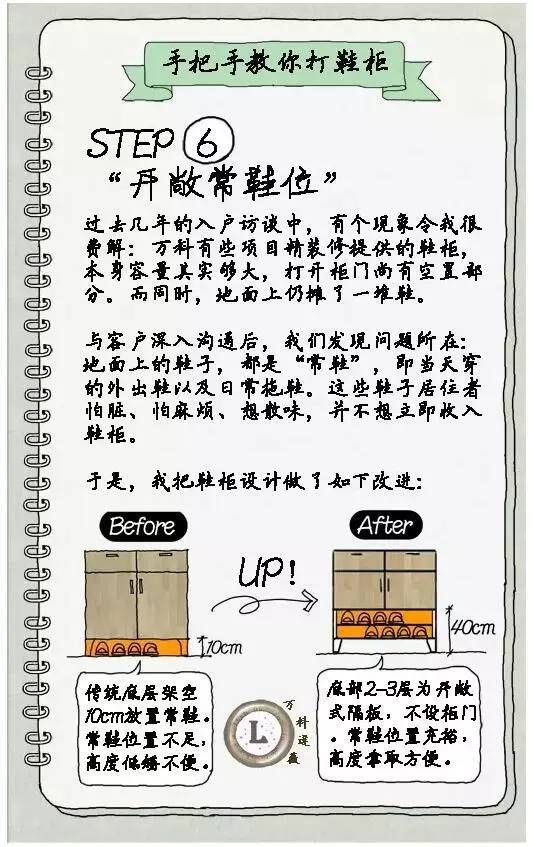 手把手教你打鞋柜
STEP 6
“开敞常鞋位”
过去几年的入户访谈中，有个现象令我很
费解：万科有些项目精装修提供的鞋柜，
本身容量其实够大，打开柜门尚有空置部
分。而同时，地面上仍摊了一堆鞋。
与客户深入沟通后，我们发现问题所在：
地面上的鞋子，都是“常鞋”，即当天穿
的外出鞋以及日常拖鞋。这些鞋子居住者
怕脏、怕麻烦、想散味，并不想立即收入
鞋柜。
于是，我把鞋柜设计做了如下改进：
Before
After
UP!
10cm
40cm
传统底层架空
10cm放置常鞋。
常鞋位置不足，
高度低矮不便。
L
万科道
底部2-3层为开敞
式隔板，不设柜门
。常鞋位置充裕，
高度拿取方便。